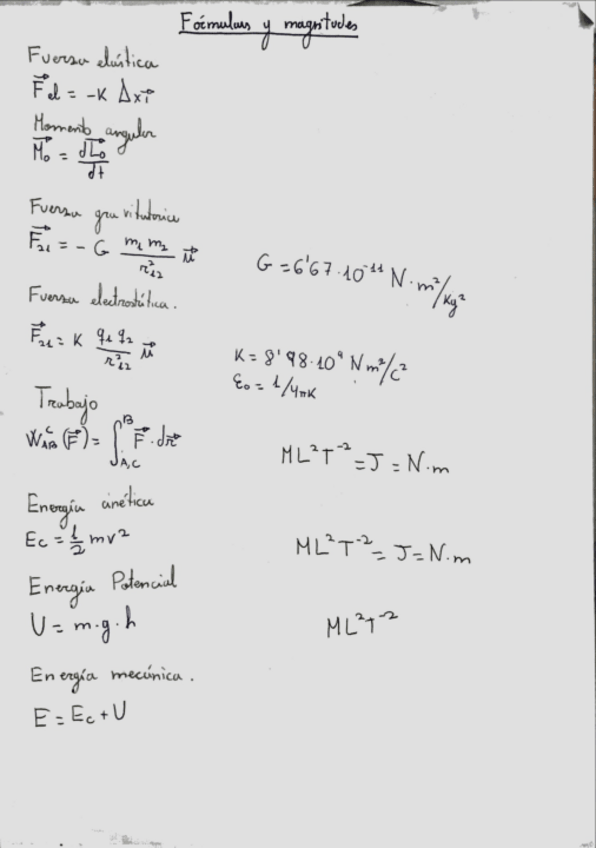 Fórmulas y magnitudes
Fuerza elástica
F⃗el = -K Δx i⃗
Momento angular
M⃗₀ = dL⃗₀/dt
Fuerza gravitatoria
F⃗₂₁ = - G m₁ m₂ / r²₁₂ u⃗    G = 6'67·10⁻¹¹ N·m²/Kg²
Fuerza electrostática.
F⃗₂₁ = K q₁ q₂ / r²₁₂ u⃗    K = 8'98·10⁹ N m²/C²
ε₀ = 1/4πK
Trabajo
W_AB^C (F⃗) = ∫_A,C^B F⃗·dr⃗    ML²T⁻² = J = N·m
Energía cinética
Ec = 1/2 mv²    ML²T⁻² = J = N·m
Energía Potencial
U = m·g·h    ML²T⁻²
Energía mecánica.
E = Ec + U